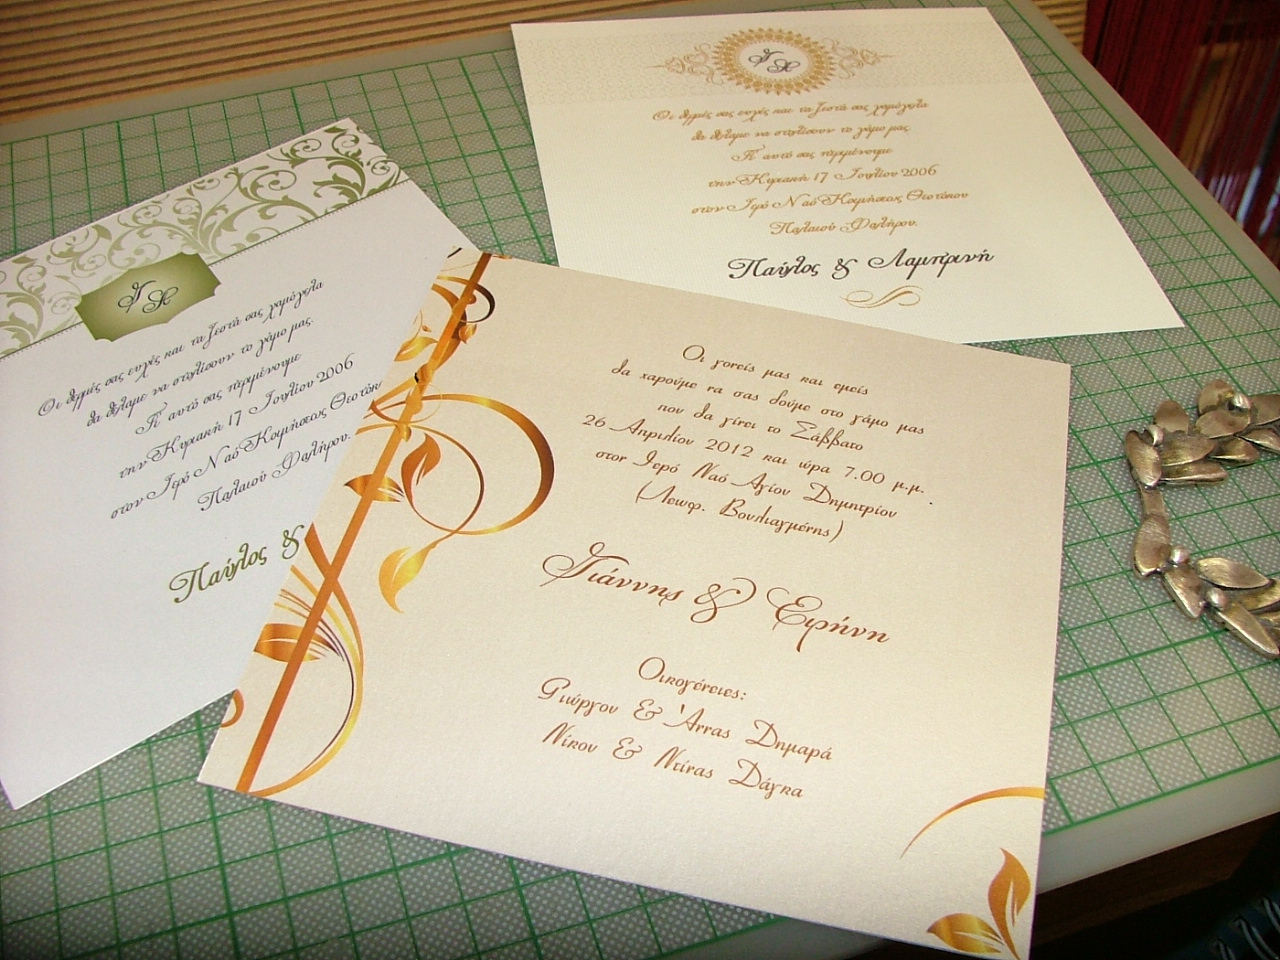 Π Λ
Οι θερμές σας ευχές και τα ζεστά σας χαμόγελα
θα θέλαμε να στολίσουν το γάμο μας.
Γι' αυτό σας περιμένουμε
την Κυριακή 17 Ιουλίου 2006
στον Ιερό Ναό Κοιμήσεως Θεοτόκου
Παλαιού Φαλήρου.
Παύλος & Λαμπρινή
Π Λ
Οι θερμές σας ευχές και τα ζεστά σας χαμόγελα
θα θέλαμε να στολίσουν το γάμο μας.
Γι' αυτό σας περιμένουμε
την Κυριακή 17 Ιουλίου 2006
στον Ιερό Ναό Κοιμήσεως Θεοτόκου
Παλαιού Φαλήρου.
Παύλος &
Οι γονείς μας και εμείς
θα χαρούμε να σας δούμε στο γάμο μας
που θα γίνει το Σάββατο
26 Απριλίου 2012 και ώρα 7.00 μ.μ.
στον Ιερό Ναό Αγίου Δημητρίου
(Λεωφ. Βουλιαγμένης)
Γιάννης & Ειρήνη
Οικογένειες:
Γιώργου & Άννας Δημαρά
Νίκου & Ντίνας Δάγκα